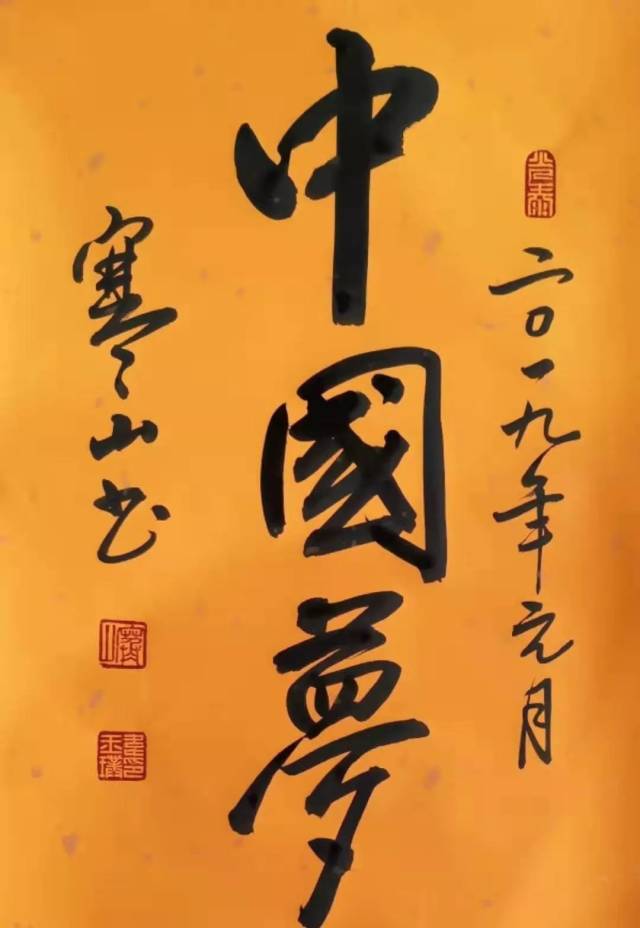 二〇一九年元月
中國夢
寒山书